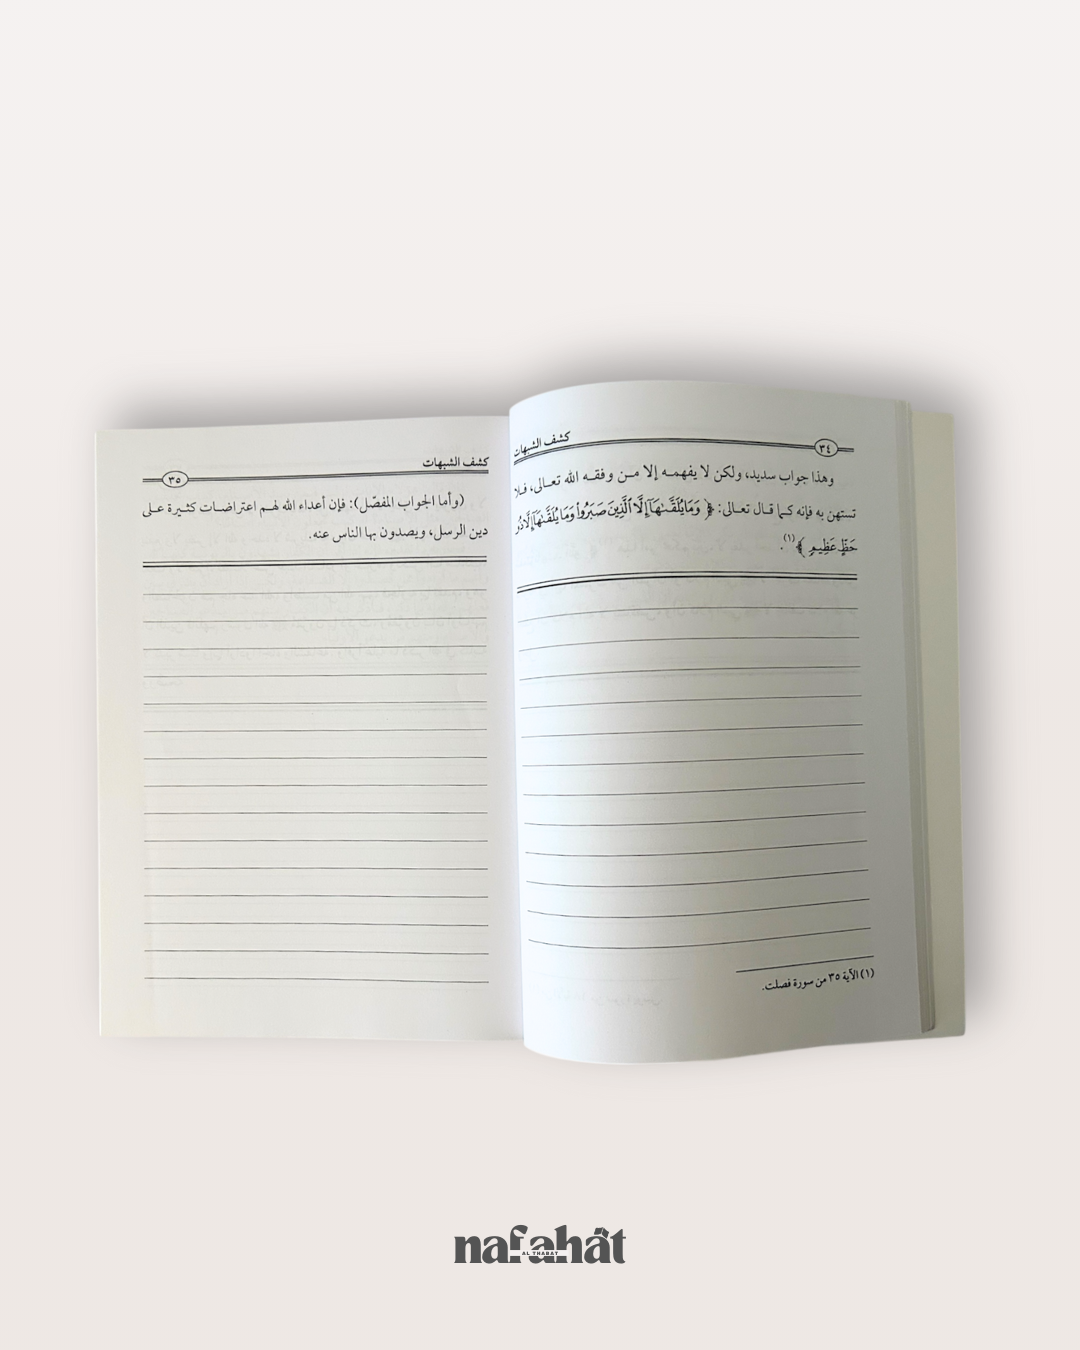 كشف الشبهات
٣٤
وهذا جواب سديد، ولكن لا يفهمه إلا من وفقه الله تعالى، فلا
تستهن به فإنه كما قال تعالى: ﴿وَمَا يُلَقَّىٰهَآ إِلَّا ٱلَّذِينَ صَبَرُوا۟ وَمَا يُلَقَّىٰهَآ إِلَّا ذُو
حَظٍّ عَظِيمٍ﴾(١).
(١) الآية ٣٥ من سورة فصلت.
كشف الشبهات
٣٥
(وأما الجواب المفصّل): فإن أعداء الله لهم اعتراضات كثيرة على
دين الرسل، ويصدون بها الناس عنه.
nafahât
AL THABAT